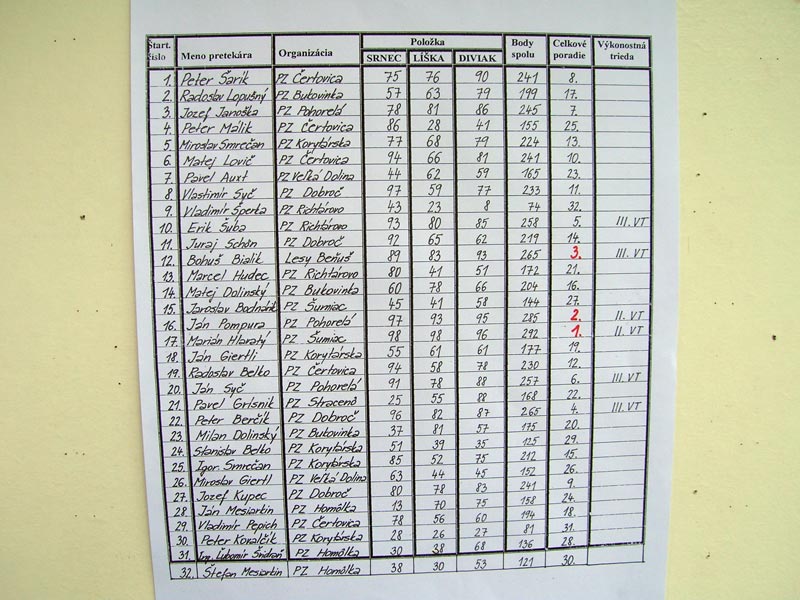 Štart. číslo Meno pretekára Organizácia Položka Body spolu Celkové poradie Výkonostná trieda
SRNEC LÍŠKA DIVIAK
1. Peter Šarik PZ Čertovica 75 76 90 241 8.
2. Radoslav Lopušný PZ Bukovinka 57 63 79 199 17.
3. Jozef Janoška PZ Pohorelá 78 81 86 245 7.
4. Peter Malik PZ Čertovica 86 28 41 155 25.
5. Miroslav Smrečan PZ Korytárska 77 68 79 224 13.
6. Matej Lovič PZ Čertovica 94 66 81 241 10.
7. Pavel Auxt PZ Veľká Dolina 44 62 59 165 23.
8. Vlastimir Syč PZ Dobroč 97 59 77 233 11.
9. Vladimír Šperka PZ Richtárovo 43 23 8 74 32.
10. Erik Šuba PZ Richtárovo 93 80 85 258 5. III. VT
11. Juraj Schön PZ Dobroč 92 65 62 219 14.
12. Bohuš Bialik Lesy Beňuš 89 83 93 265 3. III. VT
13. Marcel Hudec PZ Richtárovo 80 41 51 172 21.
14. Matej Dolinský PZ Bukovinka 60 78 66 204 16.
15. Jaroslav Bodnárik PZ Šumiac 45 41 58 144 27.
16. Ján Pompura PZ Pohorelá 97 93 95 285 2. II. VT
17. Marian Hlaratý PZ Šumiac 98 98 96 292 1. II. VT
18. Ján Giertli PZ Korytárska 55 61 61 177 19.
19. Radoslav Belko PZ Čertovica 94 58 78 230 12.
20. Ján Syč PZ Pohorelá 91 78 88 257 6. III. VT
21. Pavel Grlsnik PZ Stracenô 25 55 88 168 22.
22. Peter Berčík PZ Dobroč 96 82 87 265 4. III. VT
23. Milan Dolinský PZ Bukovinka 37 81 57 175 20.
24. Stanislav Belko PZ Korytárska 51 39 35 125 29.
25. Igor Smrečan PZ Korytárska 85 52 75 212 15.
26. Miroslav Giertl PZ Veľká Dolina 63 44 45 152 26.
27. Jozef Kupec PZ Dobroč 80 78 83 241 9.
28. Ján Mesiarkin PZ Homôlka 13 70 75 158 24.
29. Vladimír Pepich PZ Čertovica 78 56 60 194 18.
30. Peter Kovalčik PZ Korytárska 28 26 27 81 31.
31. Ing. Ľubomír Šndrań PZ Homôlka 30 38 68 136 28.
32. Štefan Mesiarkin PZ Homôlka 38 30 53 121 30.